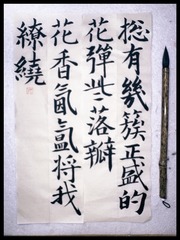 總有幾簇正盛的
花彈些落瓣
花香氤氳將我
繚繞